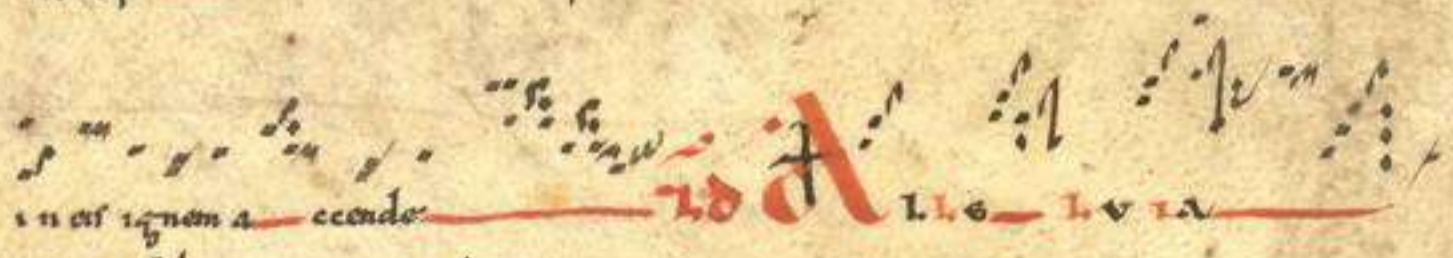 in eis ignem accende id Alleluia